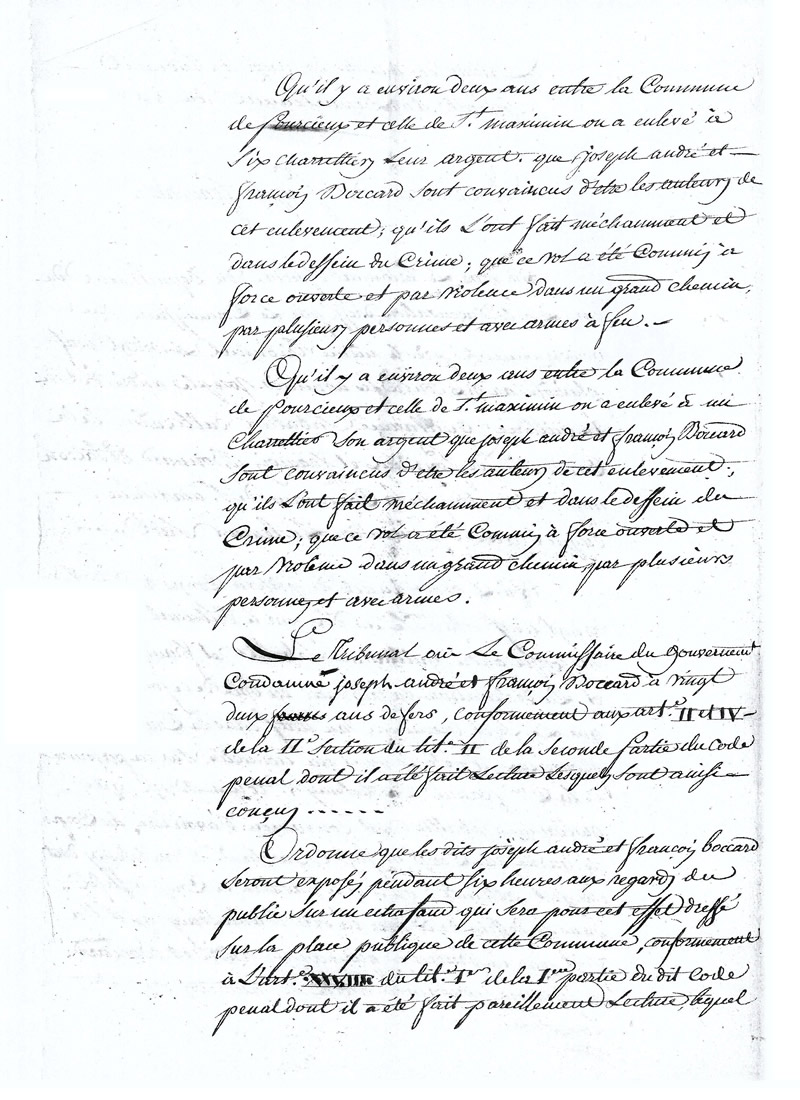 Qu'il y a environ deux ans entre la Commune
de pourcieux et celle de St. maximin on a enlevé à
Six charrettiers Leur argent. que joseph andré et
françois Boccard sont convaincus d'etre les auteurs de
cet enlevement; qu'ils L'ont fait méchamment et
dans le dessein du Crime; que ce vol a été Commis à
force ouverte et par violence dans un grand chemin,
par plusieurs personnes et avec armes à feu. -
Qu'il y a environ deux ans entre la Commune
de pourcieux et celle de St. maximin on a enlevé à un
Charrettier Son argent que joseph andré et françois Boccard
sont convaincus d'etre les auteurs de cet enlevement;
qu'ils L'ont fait méchamment et dans le dessein du
Crime; que ce vol a été Commis à force ouverte et
par violence dans un grand chemin par plusieurs
personnes et avec armes.
Le Tribunal oui Le Commissaire du gouvernemt
Condamne joseph andré et françois Boccard à vingt
deux ans de fers, conformement aux art.es II et IV
de la IIe Section du tit.e II de la seconde partie du code
penal dont il a été fait Lecture Lesquels sont ainsi
conçus ......
Ordonne que les dits joseph andré et françois boccard
seront exposés pendant six heures aux regards du
public sur un echafaud qui sera pour cet effet dressé
sur la place publique de cette Commune, conformement
à L'art.e du tit.e 1er de la 1ere partie du dit Code
penal dont il a été fait pareillement Lecture, lequel